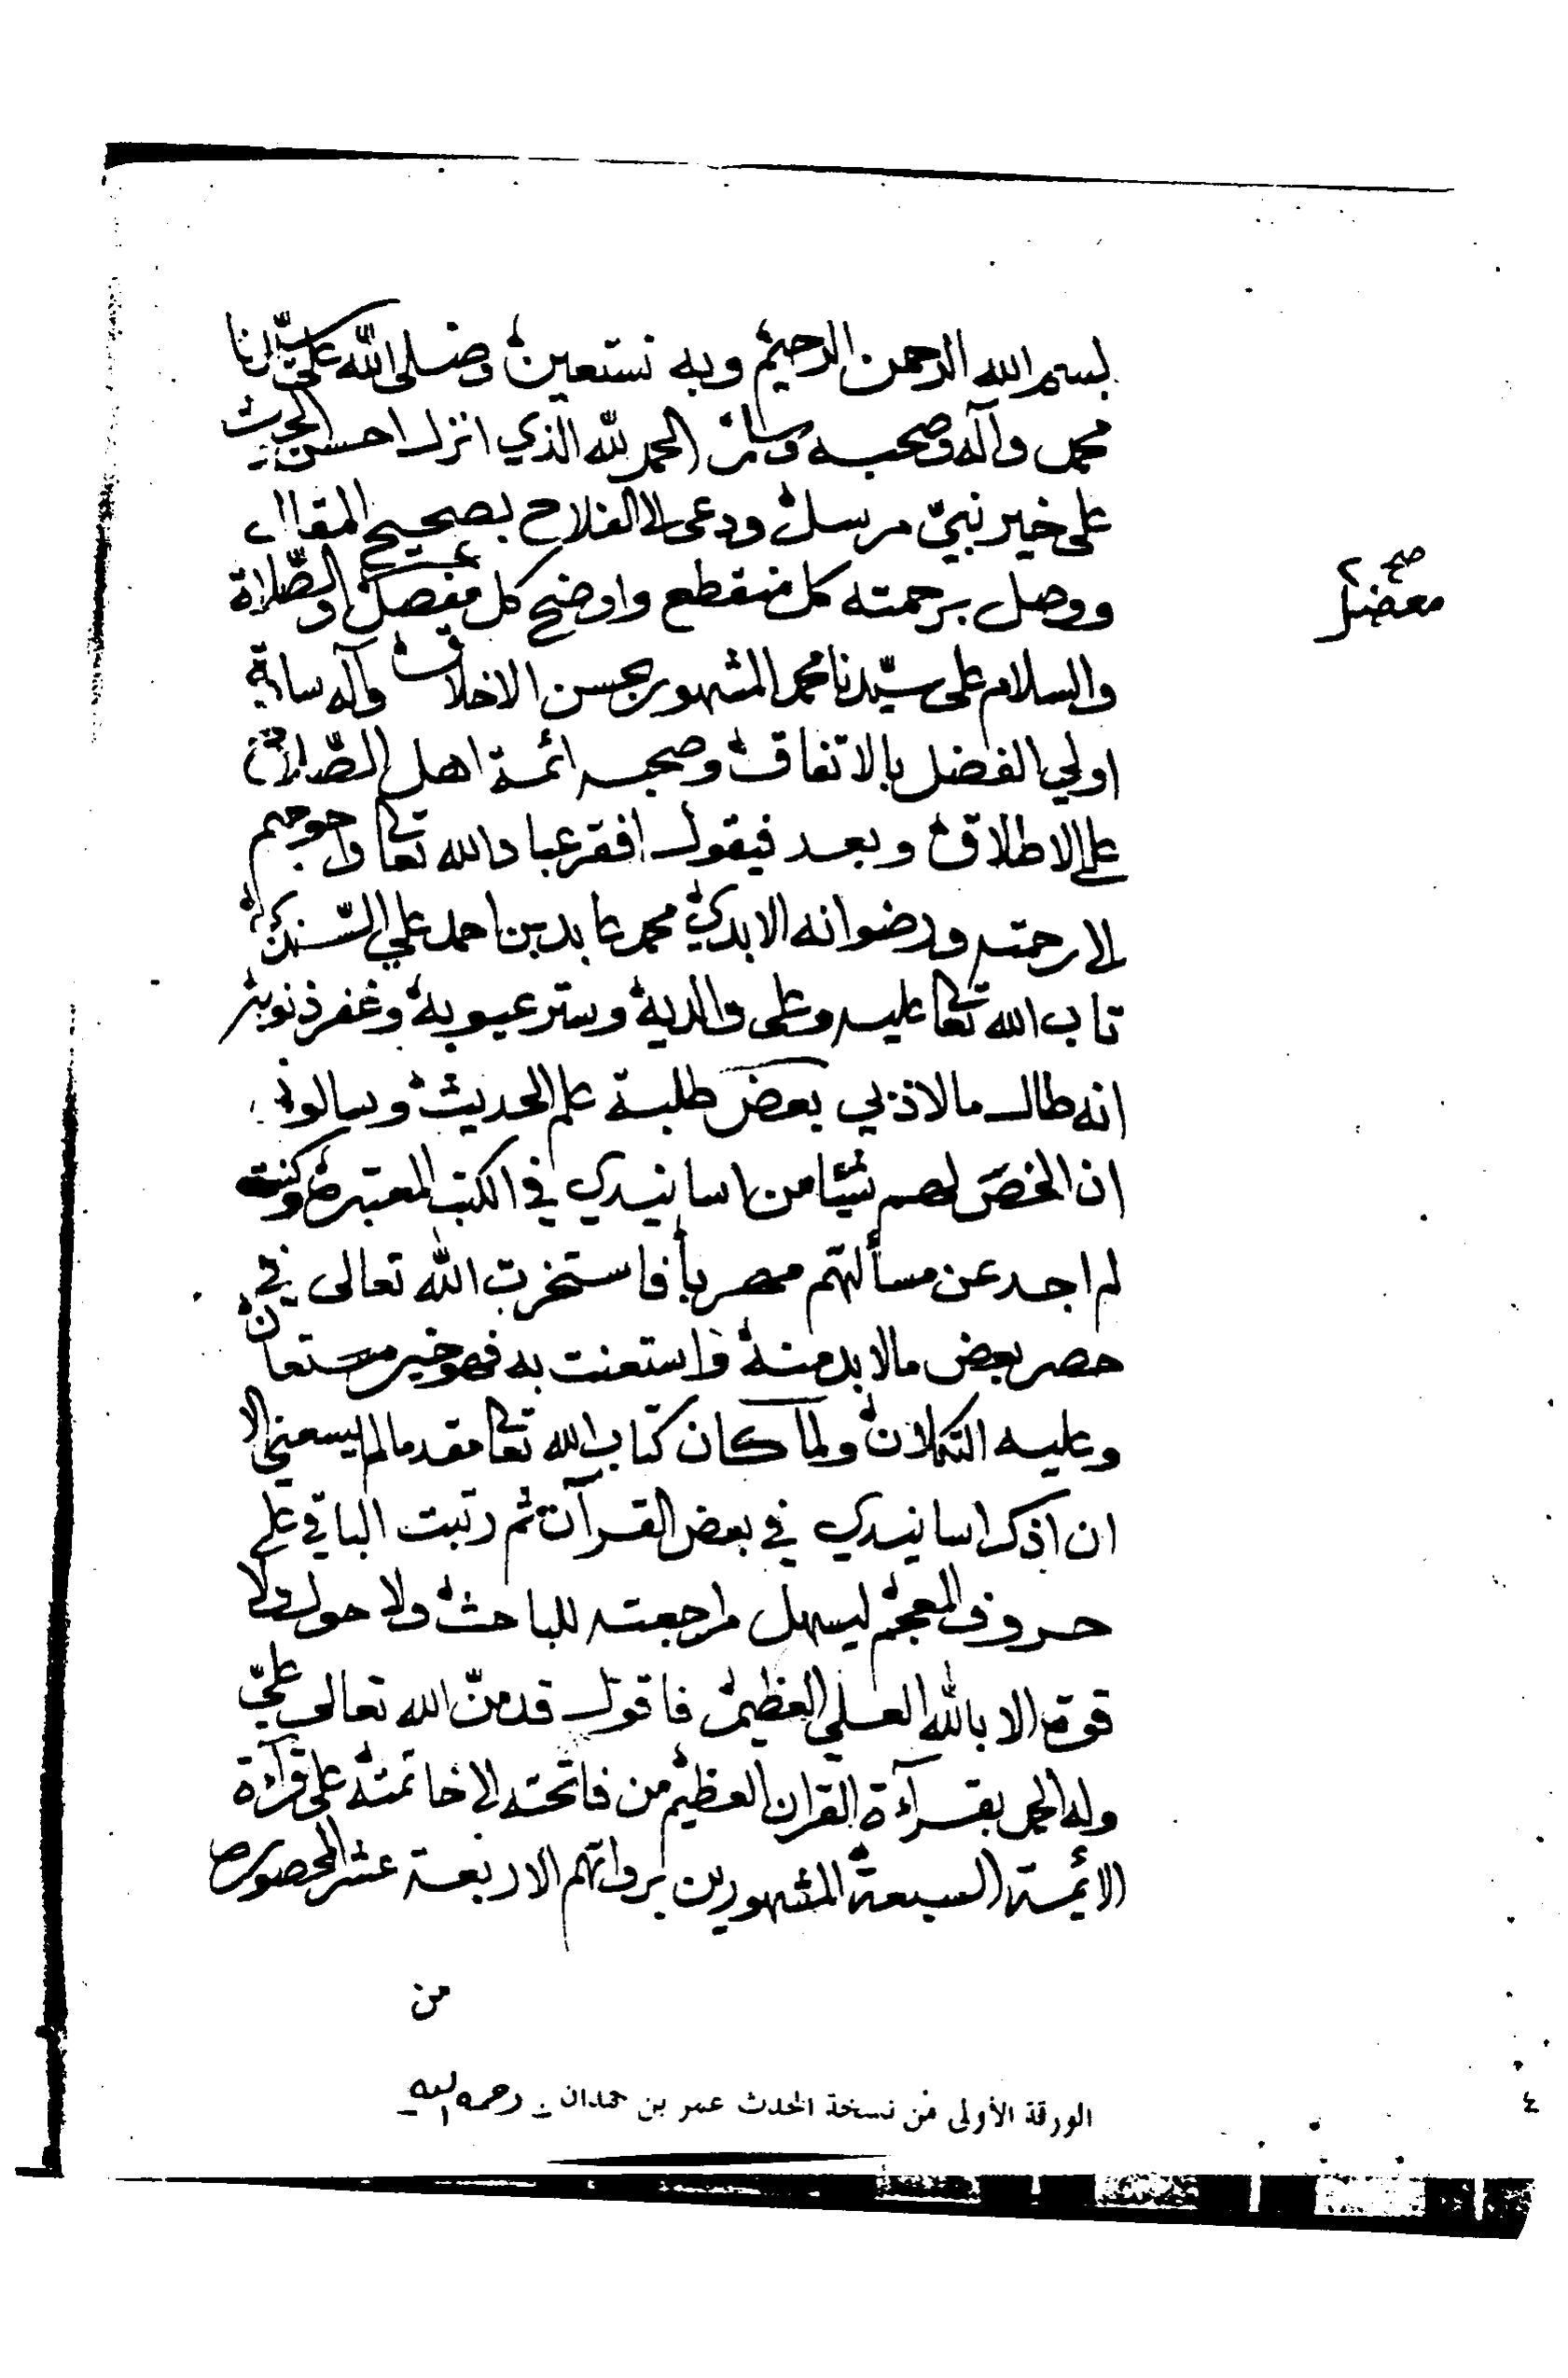 بسم الله الرحمن الرحيم وبه نستعين وصلى الله على سيدنا
محمد وآله وصحبه وسلم الحمد لله الذي انزل احسن الحديث
على خير نبيّ مرسل ودعى الى الفلاح بصحيح المقال
ووصل برحمته كل منقطع واوضح كل مفصل والصّلاة
صح ٢
معضل
والسلام على سيّدنا محمد المشهور بحسن الاخلاق وآله سادة
اولي الفضل بالاتفاق وصحبه ائمة اهل الصّلاح
على الاطلاق وبعد فيقول افقر عباد الله تعالى واحوجهم
الى رحمته ورضوانه الابدي محمد عابد بن احمد علي السّندي
تاب الله تعالى عليه وعلى والديه وستر عيوبه وغفر ذنوبه
انه طال ما لاذ بي بعض طلبة علم الحديث وسالوني
ان الخصّ لهم شيئا من اسانيدي في الكتب المعتبرة وكنت
لم اجد عن مسألتهم مهرباً فاستخرت الله تعالى في
حصر بعض ما لا بد منه واستعنت به فهو خير مستعان
وعليه التكلان ولما كان كتاب الله تعالى مقدما لم يسعني الا
ان اذكر اسانيدي في بعض القرآن ثم رتبت الباقي على
حروف المعجم ليسهل مراجعته للباحث ولا حول ولا
قوة الا بالله العلي العظيم فاقول قد منّ الله تعالى عليّ
وله الحمد بقرآءة القران العظيم من فاتحته الى خاتمته على قرآءة
الائمة السبعة المشهورين برواتهم الاربعة عشر المحصورة
من
الورقة الأولى من نسخة المحدث عمر بن حمدان - رحمه الله -
٤